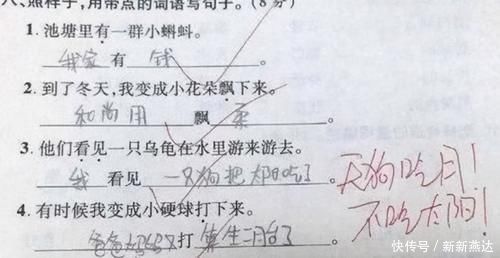 八、照样子,用带点的词语写句子。(8分)
1. 池塘里有一群小蝌蚪。
我家 有 钱 。
2. 到了冬天,我变成小花朵飘下来。
和尚用 飘柔 。
3. 他们看见一只乌龟在水里游来游去。
我 看见 一只狗把太阳吃了 。
天狗吃月!
4. 有时候我变成小硬球打下来。
不吃太阳!
爸爸妈妈 打 算生二胎了 。
快传号 / 新新燕达